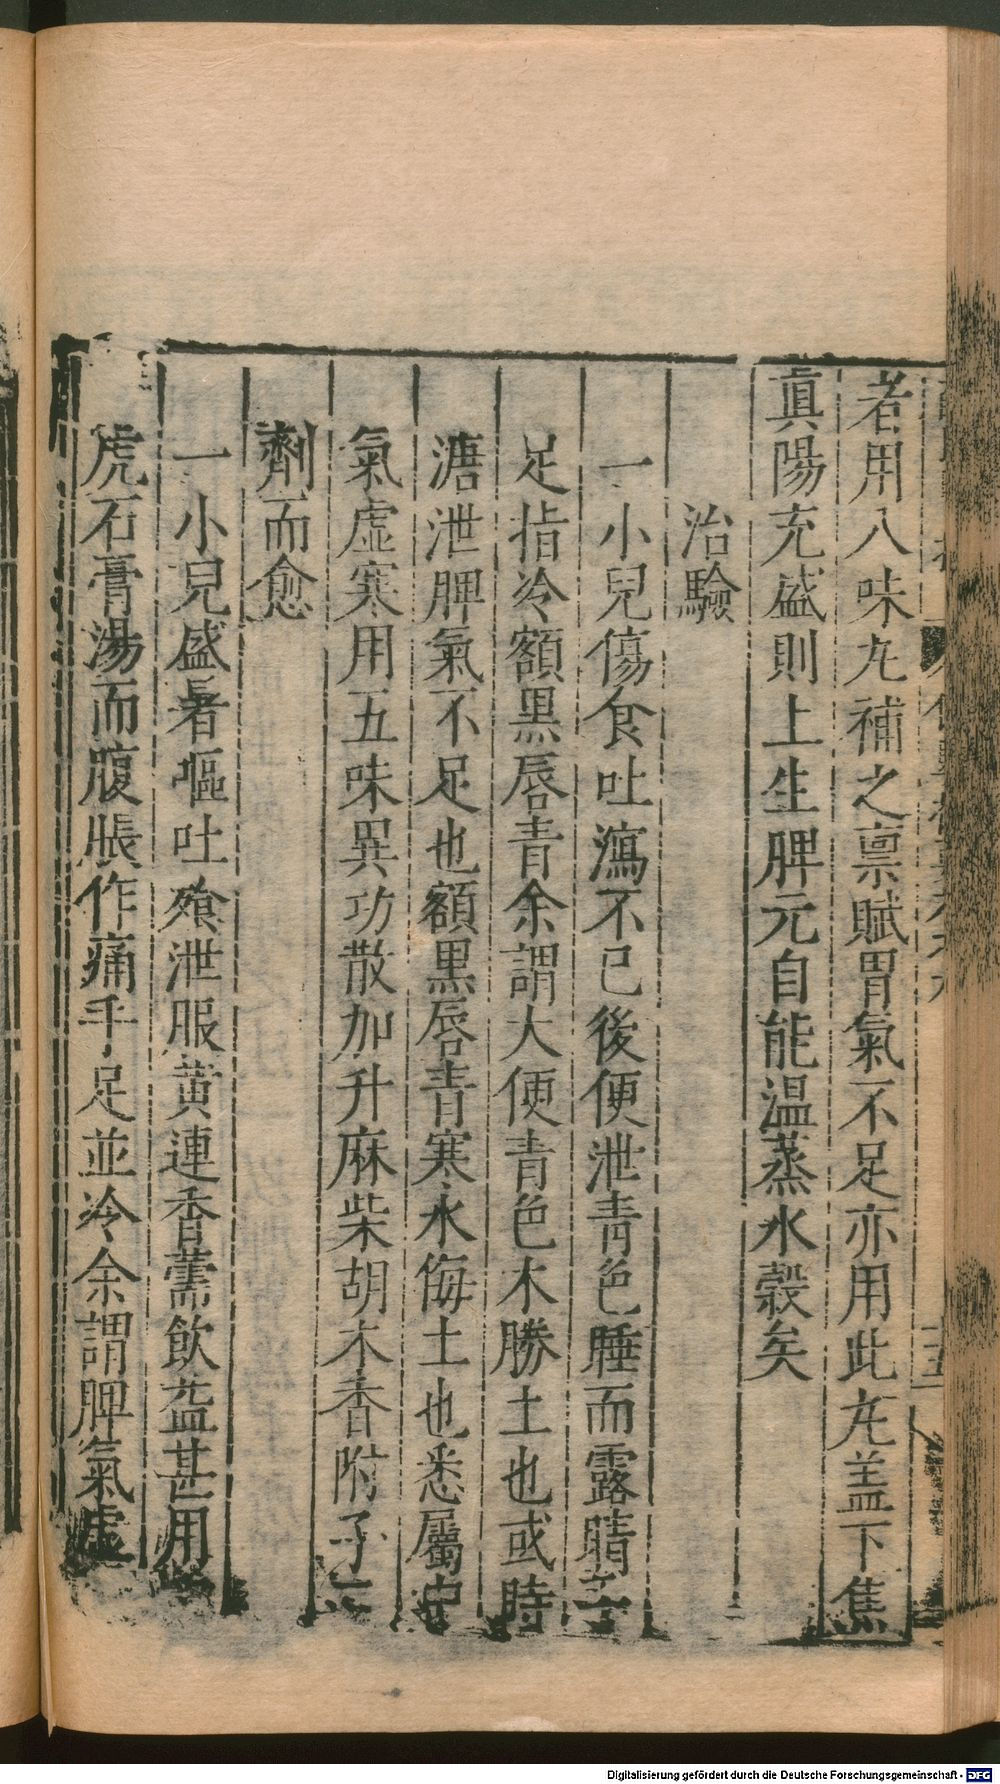 者用八味丸補之禀賦胃氣不足亦用此丸盖下焦
眞陽充盛則上生脾元自能温蒸水穀矣
治驗
一小兒傷食吐瀉不已後便泄青色睡而露睛手
足指冷額黒唇青余謂大便青色木勝土也或時
溏泄脾氣不足也額黒唇青寒水侮土也悉屬中
氣虚寒用五味異功散加升麻柴胡木香附子一
劑而愈
一小兒盛暑嘔吐飱泄服黄連香薷飲益甚用
虎石膏湯而腹脹作痛手足並冷余謂脾氣虚
Digitalisierung gefördert durch die Deutsche Forschungsgemeinschaft - DFG